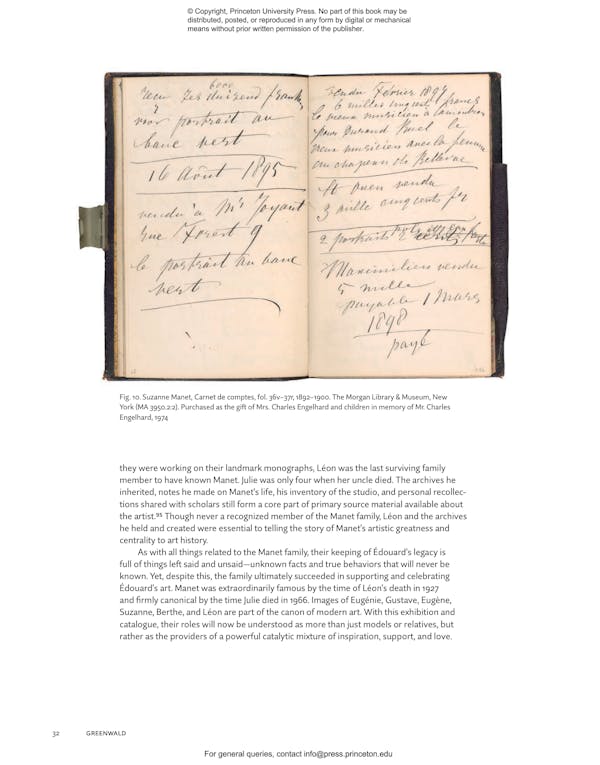 © Copyright, Princeton University Press. No part of this book may be
distributed, posted, or reproduced in any form by digital or mechanical
means without prior written permission of the publisher.
6000
francs
pour portrait au
banc vert
16 Août 1895
vendu à Mr Joyant
rue Forest 9
le portrait au banc
vert
vendu Février 1897
6 milles cinq cent francs
le vieux musicien à
pour Durand Ruel le
vieux musicien avec la femme
au chapeau de Bellevue
St ouen vendu
3 mille cinq cents frs
2 portraits
Maximilien vendu
5 mille
payable 1 Mars
1898
payé
Fig. 10. Suzanne Manet, Carnet de comptes, fol. 36v–37r, 1892–1900. The Morgan Library & Museum, New
York (MA 3950.2:2). Purchased as the gift of Mrs. Charles Engelhard and children in memory of Mr. Charles
Engelhard, 1974
they were working on their landmark monographs, Léon was the last surviving family
member to have known Manet. Julie was only four when her uncle died. The archives he
inherited, notes he made on Manet's life, his inventory of the studio, and personal recollec-
tions shared with scholars still form a core part of primary source material available about
the artist.⁹⁵ Though never a recognized member of the Manet family, Léon and the archives
he held and created were essential to telling the story of Manet's artistic greatness and
centrality to art history.
As with all things related to the Manet family, their keeping of Édouard's legacy is
full of things left said and unsaid—unknown facts and true behaviors that will never be
known. Yet, despite this, the family ultimately succeeded in supporting and celebrating
Édouard's art. Manet was extraordinarily famous by the time of Léon's death in 1927
and firmly canonical by the time Julie died in 1966. Images of Eugénie, Gustave, Eugène,
Suzanne, Berthe, and Léon are part of the canon of modern art. With this exhibition and
catalogue, their roles will now be understood as more than just models or relatives, but
rather as the providers of a powerful catalytic mixture of inspiration, support, and love.
32 GREENWALD
For general queries, contact info@press.princeton.edu